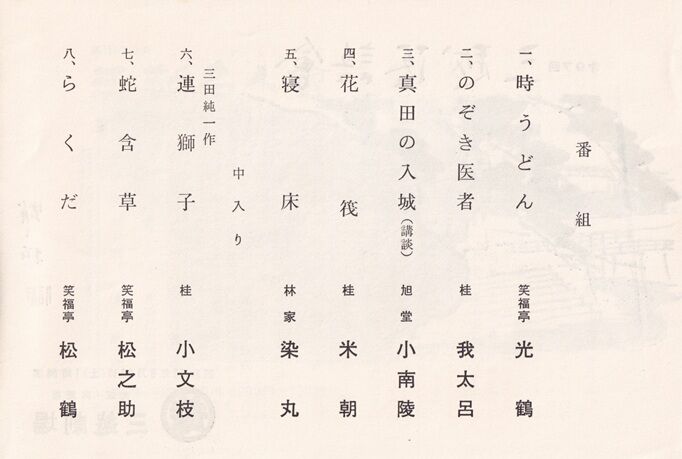 番組
一、時うどん 笑福亭 光鶴
二、のぞき医者 桂 我太呂
三、真田の入城（講談） 旭堂 小南陵
四、花筏 桂 米朝
五、寝床 林家 染丸
中入り
三田純一作
六、連獅子 桂 小文枝
七、蛇含草 笑福亭 松之助
八、らくだ 笑福亭 松鶴